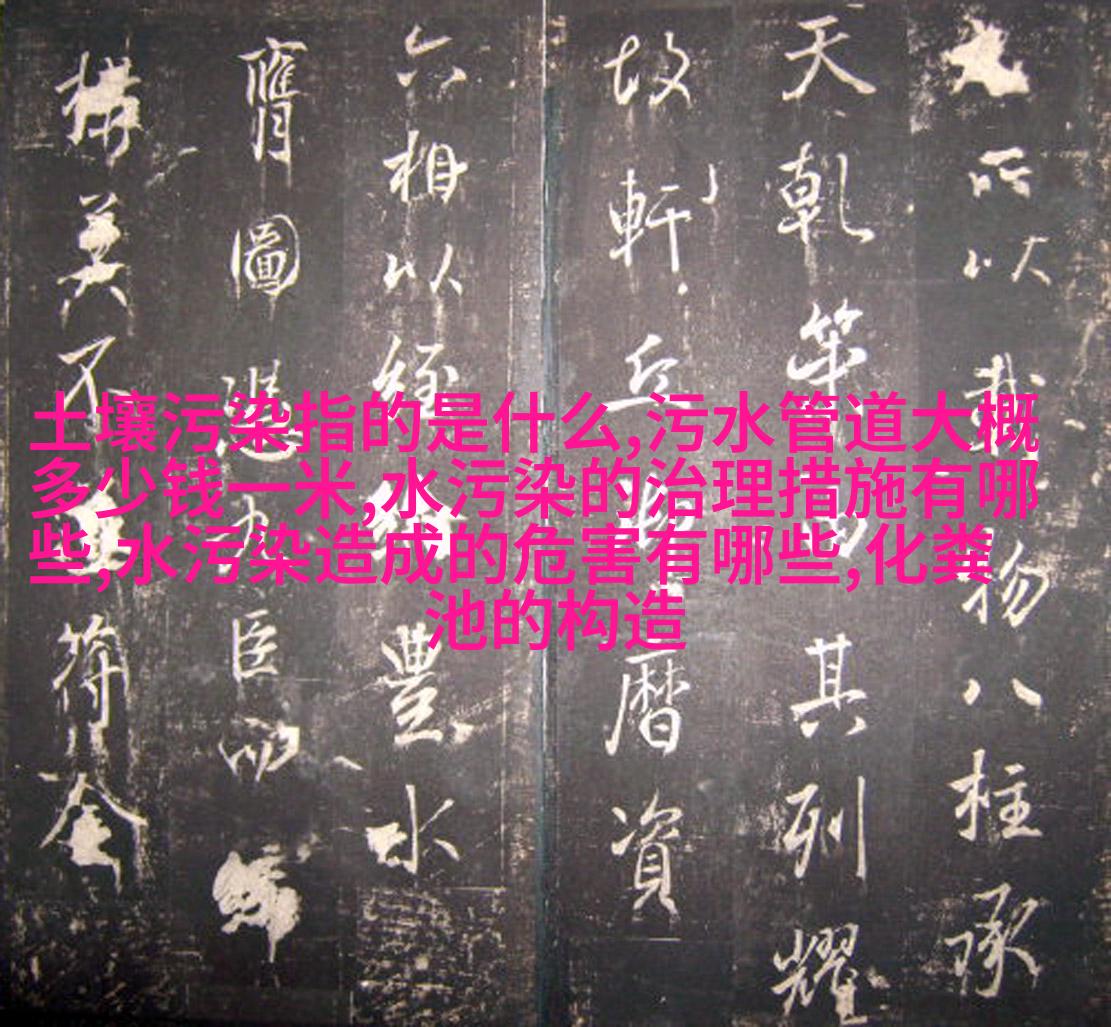 土壤污染指的是什么,污水管道大概
多少钱一米,水污染的治理措施有哪
些,水污染造成的危害有哪些,化粪
池的构造
所以載物八柱承
天乾其列耀
故軒丘曆資
六相以經豐水
膺圖臣
構莫不符